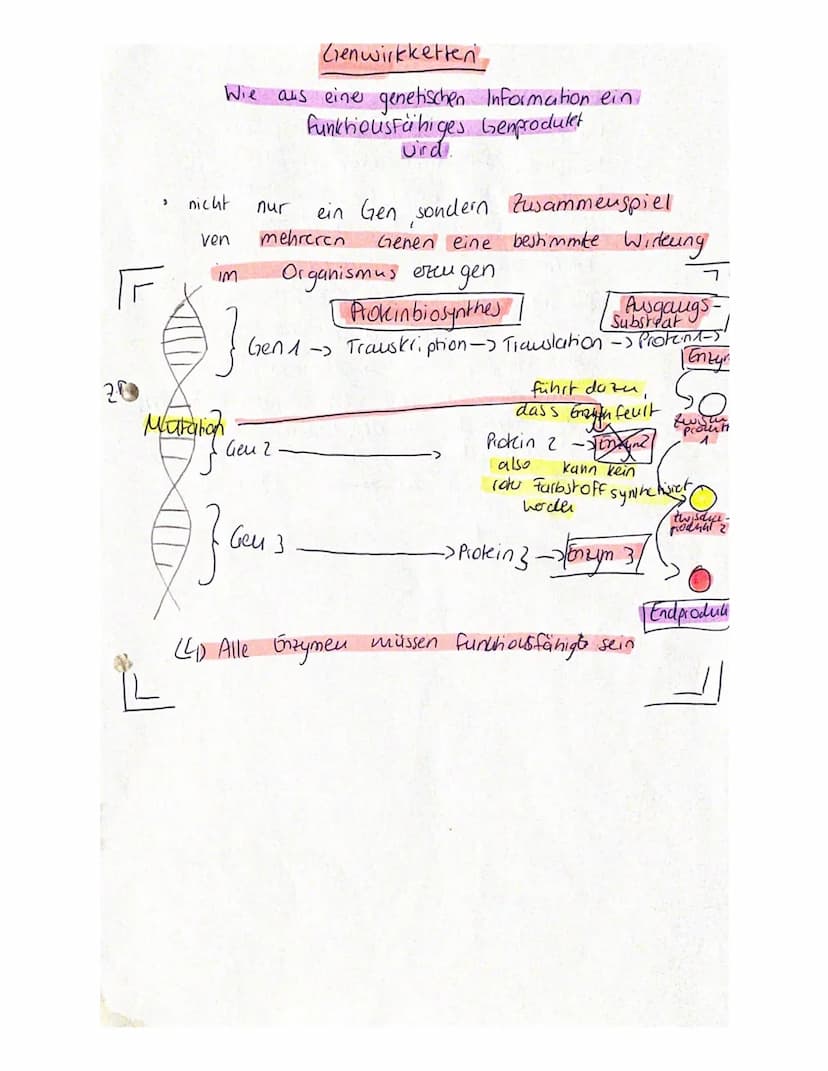 Genwirkketten
Wie aus eine genetischen Information ein
funktionsfähiges Genprodukt
wird.
• nicht nur ein Gen, sondern Zusammenspiel
von mehreren Genen eine bestimmte Wirkung
im Organismus erzeugen
Proteinbiosynthes
Ausgangs-
Substrat
Gen 1 -> Transkription -> Translation -> Protein 1 ->
Enzym
führt dazu,
dass Enzym feult
Mutation
Zwischen
produkt
1
Gen 2
Protein 2 -> Enzym 2
also kann kein
roter Farbstoff synthetisiert
werden
Zwischen-
produkt 2
Gen 3 -> Protein 3 -> Enzym 3
Endproduk
(L) Alle Enzymen müssen funktionsfähigt sein